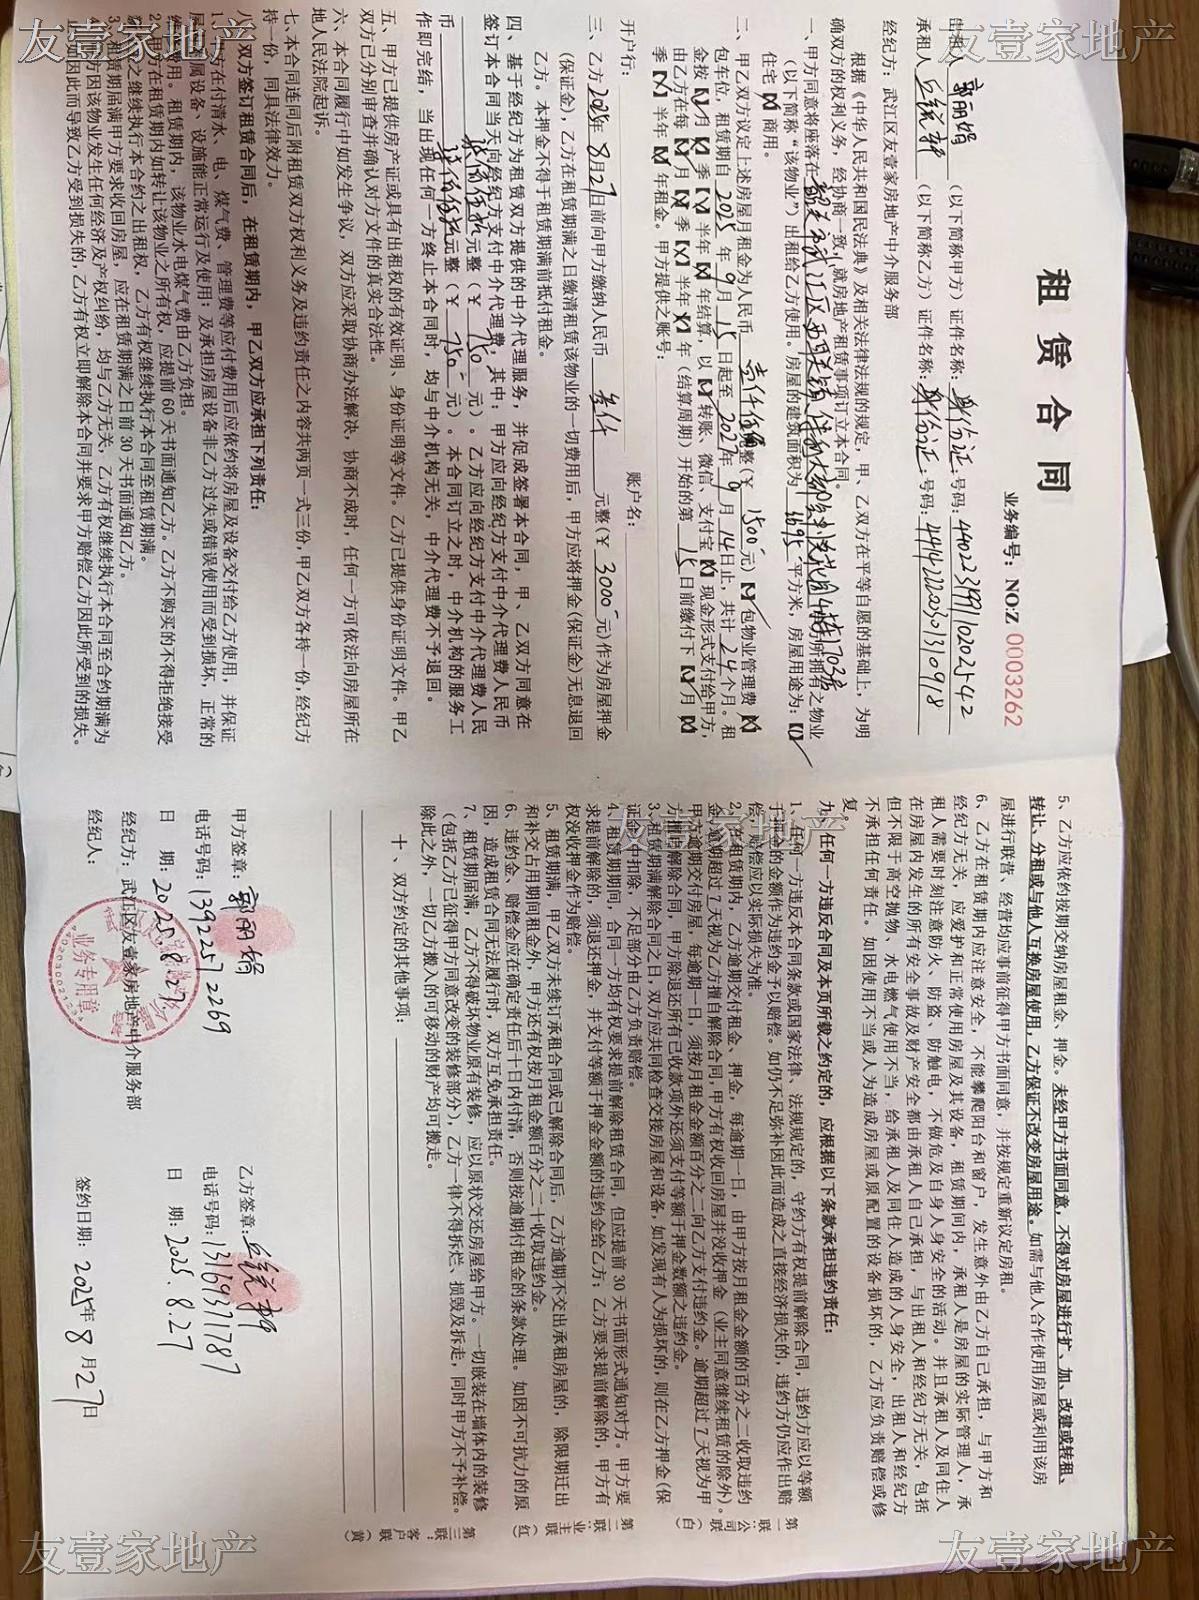 友壹家地产
友壹家地产
租赁合同
业务编号：NO:Z 0003262
出租人 郭丽娟 （以下简称甲方）证件名称：身份证 号码：440223199110202542
承租人 （以下简称乙方）证件名称：身份证 号码：
经纪方：武江区友壹家房地产中介服务部
根据《中华人民共和国民法典》及相关法律法规的规定，甲、乙双方在平等自愿的基础上，为明
确双方的权利义务，经协商一致，就房地产租赁事项订立本合同。
一、甲方同意将座落在 韶关市武江区西联镇 703房 的房屋所指者之物业
（以下简称“该物业”）出租给乙方使用。房屋的建筑面积为 平方米，房屋用途为：【√】
住宅【 】商用。
二、甲乙双方议定上述房屋月租金为人民币 壹仟伍佰 元整（￥ 1500 元）【 】包物业管理费【 】
包车位，租赁期自 2025 年 9 月 15 日起至 2027 年 9 月 14 日止，共计 24 个月。租
金按【√】月【 】季【 】半年【 】年结算，以【 】转账、微信、支付宝【 】现金形式支付给甲方，
由乙方在每【√】月【 】季【 】半年【 】年（结算周期）开始的第 15 日前缴付下【√】月【 】
季【 】半年【 】年租金。甲方提供之账号：
开户行： 账户名：
三、乙方 2025年 8月27日前向甲方缴纳人民币 叁仟 元整（￥ 3000 元）作为房屋押金
（保证金），乙方在租赁期满之日缴清租赁该物业的一切费用后，甲方应将押金（保证金）无息退回
乙方。本押金不得于租赁期满前抵付租金。
四、基于经纪方为租赁双方提供的中介代理服务，并促成签署本合同，甲、乙双方同意在
签订本合同当天向经纪方支付中介代理费，其中：甲方应向经纪方支付中介代理费人民币
柒佰伍拾 元整（￥ 750 元）。乙方应向经纪方支付中介代理费人民
币 柒佰伍拾 元整（￥ 750 元）。本合同订立之时，中介机构的服务工
作即完结，当出现任何一方终止本合同时，均与中介机构无关，中介代理费不予退回。
五、甲方已提供房产证或具有出租权的有效证明、身份证明等文件。乙方已提供身份证明文件。甲乙
双方已分别审查并确认对方文件的真实合法性。
六、本合同履行中如发生争议，双方应采取协商办法解决，协商不成时，任何一方可依法向房屋所在
地人民法院起诉。
七、本合同连同后附租赁双方权利义务及违约责任之内容共两页一式三份，甲乙双方各持一份，经纪方
持一份，同具法律效力。
八、双方签订租赁合同后，在租赁期内，甲乙双方应承担下列责任：
1、甲方在付清水、电、煤气费、管理费等应付费用后应依约将房屋及设备交付给乙方使用，并保证
房屋附属设备、设施能正常运行及使用；及承担房屋设备非乙方过失或错误使用而受到损坏，正常的
维修费用。租赁期内，该物业水电煤气费由乙方负担。
2、甲方在租赁期内如转让该物业之所有权，应提前60天书面通知乙方。乙方不购买的不得拒绝接受
之继续执行本合约之出租权，乙方有权继续执行本合同至租赁期满。
3、租赁期届满甲方要求收回房屋，应在租赁期满之日前30天书面通知乙方。
方因该物业发生任何经济及产权纠纷，均与乙方无关，乙方有权继续执行本合同至合约期满为
如因此而导致乙方受到损失的，乙方有权立即解除本合同并要求甲方赔偿乙方因此所受到的损失。
5、乙方应依约按期交纳房屋租金、押金。未经甲方书面同意，不得对房屋进行扩、加、改建或转租、
转让、分租或与他人互换房屋使用，乙方保证不改变房屋用途。如需与他人合作使用房屋或利用该房
屋进行联营、经营均应事前征得甲方书面同意，并按规定重新议定房租。
6、乙方在租赁期内应注意安全，不能攀爬阳台和窗户，发生意外由乙方自己承担，与甲方和
经纪方无关，应爱护和正常使用房屋及其设备，租赁期间内，承租人是房屋的实际管理人，承
租人需要时刻注意防火、防盗、防触电，不做危及自身人身安全的活动。并且承租人及同住人
在房屋内发生的所有安全事故及财产安全都由承租人自己承担，与出租人和经纪方无关，包括
但不限于高空抛物、水电燃气使用不当，给承租人及同住人造成的人身安全，出租人和经纪方
不承担任何责任。如因使用不当或人为造成房屋或原配置的设备损坏的，乙方应负责赔偿或修
复。
九、任何一方违反合同及本页所载之约定的，应根据以下条款承担违约责任：
1、任何一方违反本合同条款或国家法律、法规规定的，守约方有权提前解除合同，违约方应以等额
于押金的金额作为违约金予以赔偿。如仍不足弥补因此而造成之直接经济损失的，违约方仍应作出赔
偿，赔偿应以实际损失为准。
2、在租赁期内，乙方逾期交付租金、押金，每逾期一日，由甲方按月租金金额的百分之二收取违约
金，逾期超过7天视为乙方擅自解除合同，甲方有权收回房屋并没收押金（业主同意继续租赁的除外）。
甲方逾期交付房屋，每逾期一日，须按月租金金额百分之二向乙方支付违约金。逾期超过7天视为甲
方擅自解除合同，甲方除退还所有已收款项外还须支付等额于押金数额之违约金。
3、租赁期满解除合同之日，双方应共同检查交接房屋和设备，如发现有人为损坏的，则在乙方押金（保
证金）中扣除，不足部分由乙方负责赔偿。
4、租赁期期间，合同一方均有权要求提前解除租赁合同，但应提前30天书面形式通知对方。甲方要
求提前解除的，须退还押金，并支付等额于押金金额的违约金给乙方；乙方要求提前解除的，甲方有
权没收押金作为赔偿。
5、租赁期满，甲乙双方未续订承租合同或已解除合同后，乙方逾期不交出承租房屋的，除限期迁出
和补交占用期间租金外，甲方还有权按月租金额百分之二十收取违约金。
6、违约金、赔偿金应在确定责任后十日内付清，否则按逾期付租金的条款处理。如因不可抗力的原
因，造成租赁合同无法履行时，双方互免承担责任。
7、租赁期届满，乙方不得破坏物业原有装修，应以原状交还房屋给甲方。一切嵌装在墙体内的装修
（包括乙方已征得甲方同意改变的装修部分），乙方一律不得拆烂、损毁及拆走，同时甲方不予补偿。
除此之外，一切乙方搬入的可移动的财产均可搬走。
十、双方约定的其他事项：
甲方签章：郭丽娟 乙方签章：
电话号码：13922572269 电话号码：13169311787
日 期：2025.8.27 日 期：2025.8.27
经纪方：武江区友壹家房地产中介服务部
经纪人： 签约日期：2025年 8 月 27 日
业务专用章
第一联：公司（白）
第二联：业主（红）
第三联：客户（黄）
友壹家地产
友壹家地产
友壹家地产